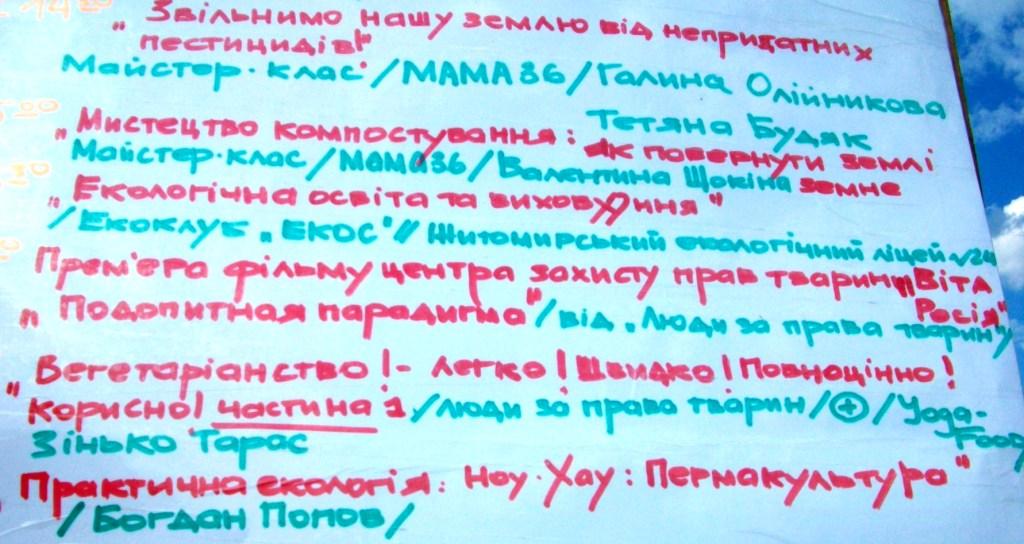 14 00
„ Звільнимо нашу землю від непридатних
пестицидів!"
Майстер-клас /МАМА86/ Галина Олійникова
00
Тетяна Будяк
„ Мистецтво компостування: як повернути землі
Майстер-клас /МАМА86/ Валентина Щокіна земне
30
„ Екологічна освіта та виховання "
/ Екоклуб „ЕКОС" // Житомирський екологічний ліцей №24
Прем'єра фільму центра захисту прав тварин „Віта
Росія"
„ Подопитная парадигма" /від „Люди за права тварин"/
„ Вегетаріанство! - легко! Швидко! Повноцінно!
корисно! частина 1 /люди за права тварин/ + / Yoga-
Food
Зінько Тарас
Практична екологія: Ноу-Хау: Пермакультура"
/Богдан Попов/